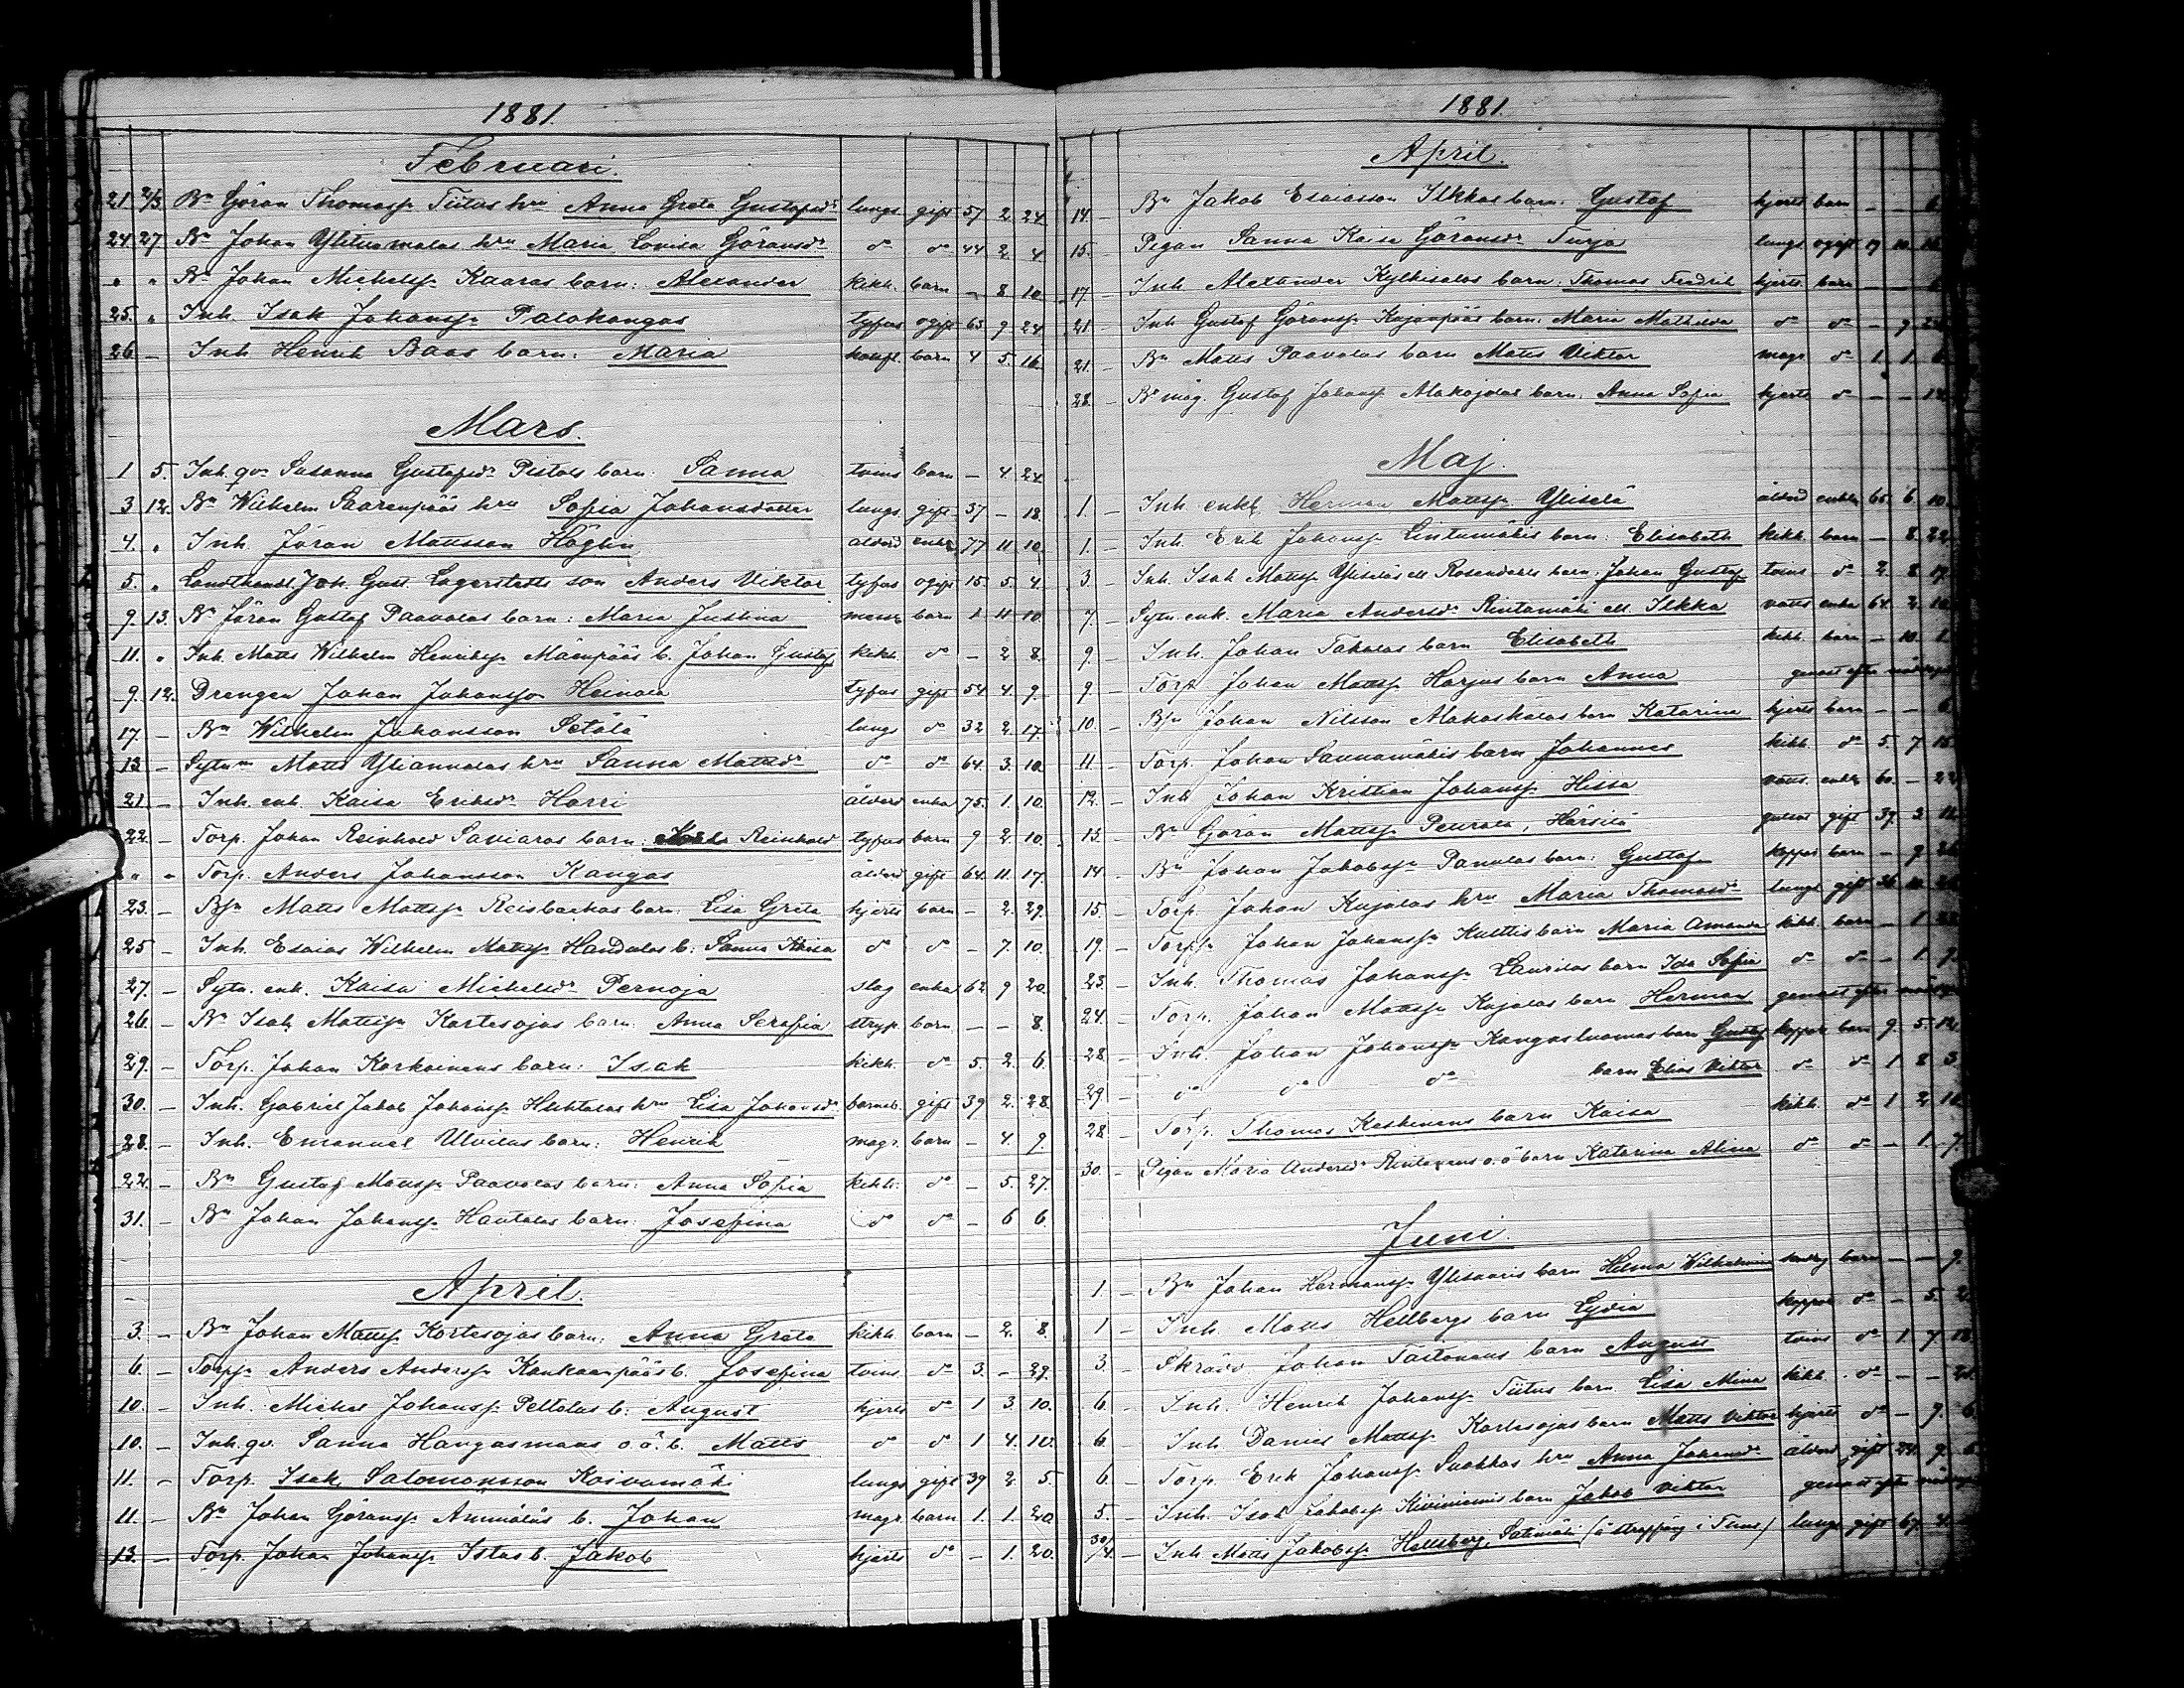 1881.
Februari.
21 2/3 Bn Göran Thomass. Tiitus hru Anna Greta Gustafsdr lungs. gift 57 2 24
24 27 Bn Johan Ylituomalas hru Maria Lovisa Göransdr do do 44 2 4
" " Bn Johan Michelss. Kaaras barn: Alexander kikh. barn – 8 10
25. " Inh. Isak Johanss. Palokangas tyfus ogift 63 9 24
26 – Inh Henrik Baas barn: Maria barn 4 5. 16.
Mars.
1 5. Inh. qv. Susanna Gustafsdr Pistols barn: Sanna tvins barn – 4 24
3 12. Bn Wilhelm Saarenpääs hru Sofia Johansdotter lungs. gift 37 – 18.
4. " Inh. Jöran Mattsson Höglin ålderd enkl. 77 11 10.
5. " Landthandl. Joh. Gust. Lagerstedts son Anders Viktor tyfus ogift 15. 5. 4.
9 13. Bn Jöran Gustaf Paavolas barn: Maria Justina messl. barn 1 11 10
11. " Inh. Matts Wilhelm Henrikss. Mäenpääs b. Johan Gustaf kikh. do – 2 8.
9. 12. Drengen Johan Johansson Heinola tyfus gift 54 4. 9.
17. – Bn Wilhelm Johansson Setälä lungs do 32 2. 17.
13 – Sytn. Matts Yliannalas hru Sanna Mattsdr do do 64. 3. 10
21 – Inh. enk. Kaisa Eriksdr Harri ålderd enka 75. 1. 10.
22. – Torp. Johan Reinhold Saviaros barn: Reinhold tyfus barn 9 2. 10
" " Torp. Anders Johansson Kangas ålderd gift 64. 11. 17.
23. – Bs. Matts Mattss. Reisbackas barn: Lisa Greta hjerts barn – 2. 29.
25 – Inh. Esaias Wilhelm Mattss. Handolas b: Sanna Kaisa do do – 7. 10.
27. – Sytn. enk. Kaisa Michelsdr Pernaja slag enka 62. 9 20.
26. – Bn Isak Mattss. Kortesojas barn: Anna Serafia stryp. barn – – 8.
29. – Torp. Johan Korkoinens barn: Isak kikh. do 5. 2. 6.
30. – Inh. Gabriel Jakob Johanss. Huhtalas hru Lisa Johansdr barnsb. gift 39 2. 28
28. – Inh. Emanuel Ulvilas barn: Henrik magr. barn – 4. 9.
22. – Bn Gustaf Mattss. Paavolas barn: Anna Sofia kikh. do – 5. 27.
31. – Bn Johan Johanss. Hautalas barn: Josefina do do – 6 6.
April.
3. – Bn Johan Mattss. Kortesojas barn: Anna Greta kikh. barn – 2. 8.
6. – Torps. Anders Anderss. Kankaanpääs b. Josefina tvins. do 3. – 29.
10. – Inh. Michel Johanss. Peltolas b: August hjerts do 1 3. 10.
10. – Inh. qv. Sanna Hangasmaas o.ä. b. Matts do do 1 4. 10.
11. – Torp. Isak Salomonsson Koivumäki lungs gift 39 2. 5.
11. – Bn Johan Göranss. Ammäläs b. Johan magr. barn 1. 1. 20
13. – Torp. Johan Johanss. Istas b. Jakob hjerts do – 1. 20.
1881.
April.
14. – Bn Jakob Esaiasson Ilkkas barn: Gustaf hjerts barn – – 6.
15. – Pigan Sanna Kaisa Göransdr Turja lungs ogift 19 10.
17. – Inh Alexander Kylkisalos barn: Thomas Fredrik hjerts barn – –
21 – Inh Gustaf Göranss. Kujanpääs barn: Maria Mathilda do do – 9
21. – Bn Matts Paavolas barn Matts Viktor magr do 1. 1.
28. – Bs måg. Gustaf Johanss. Alakojolas barn: Anna Sofia hjerts do – – 14.
Maj.
1. – Inh enkl. Herman Mattss. Yliselä ålderd enkl. 65. 6 10.
1. – Inh. Erik Johanss. Lintamäkis barn: Elisabeth kikh. barn – 8. 22
3. – Inh. Isak Mattss. Yliseläs ell. Rosendahls barn: Johan Gustaf tvins do 2. 8 17.
7. – Sytn. enk. Maria Andersdr Rintamäki ell. Ilkka vatts. enka 64. 2. 10
9. – Inh. Johan Takalas barn Elisabeth kikh. barn – 10. 1.
9. – Torp. Johan Mattss. Harjus barn Anna genast efter
10. – Bs. Johan Nilsson Alakoskolas barn Katarina hjerts barn – – 6
11 – Torp. Johan Saunamäkis barn Johannes kikh. do 5. 7 15.
12. – Inh Johan Kristian Johanss. Hissa vatts. enkl. 60. – 22
13. – Bn Göran Mattss. Peurala, Härsilä gift 37. 3
14 – Bn Johan Jakobss. Panulas barn: Gustaf koppor barn – 9
15. – Torp. Johan Kujalas hru Maria Thomasdr lungs gift 36 10.
19. – Torps. Johan Johanss. Kulttis barn Maria Amanda kikh. barn – 1
23. – Inh. Thomas Johanss. Laurilas barn Ida Sofia do do – 1 9.
24. – Torp. Johan Mattss. Kujalas barn Herman genast efter
28 – Inh. Johan Johanss. Kangasluomas barn Gustaf koppor barn 9. 5. 12
29 – do do do barn Elias Viktor do do 1 8 3
28 – Torp. Thomas Keskinens barn Kaisa kikh. do 1 2
30. – Pigan Maria Andersdr o.ä barn Katarina Alina do do – 1. 7.
Juni.
1 – Bn Johan Hermanss. Ylisaaris barn Hilma Wilhelmina barn – – 9.
1 – Inh Matts Hellbergs barn Lydia koppor. do – 5. 2
3. – Skrädd Johan Taitonens barn August tvins do 1 7
6 – Inh. Henrik Johanss. Tiitus barn Lisa Mina kikh. do – –
6. – Inh. Daniel Mattss. Kortesojas barn Matts Viktor hjerts do – 9. 6
6. – Torp. Erik Johanss. Luokkas hru Anna Johansdr ålderd. gift 9. 6.
5. – Inh. Isak Jakobss. Kiviniemis barn Jakob Viktor genast efter
30/4. – Inh Matts Jakobss. Hellsberg, Salumäki (å i Turus) lungs gift 67.